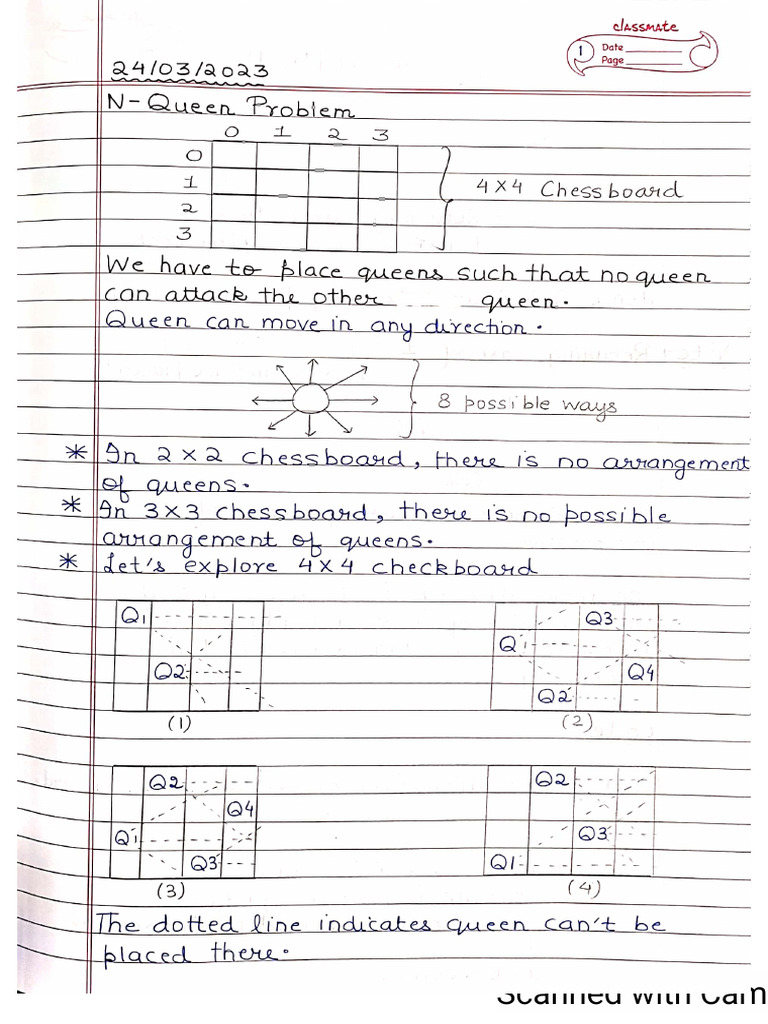 classmate
1
Date
Page
24/03/2023
N-Queen Problem
0 1 2 3
0
1
2
3
4×4 Chessboard
We have to place queens such that no queen
can attack the other queen.
Queen can move in any direction.
8 possible ways
* In 2×2 chessboard, there is no arrangement
of queens.
* In 3×3 chessboard, there is no possible
arrangement of queens.
* Let's explore 4×4 checkboard
Q1
Q2
(1)
Q3
Q1
Q4
Q2
(2)
Q2
Q4
Q1
Q3
(3)
Q2
Q3
Q1
(4)
The dotted line indicates queen can't be
placed there.
Scanned with Cam